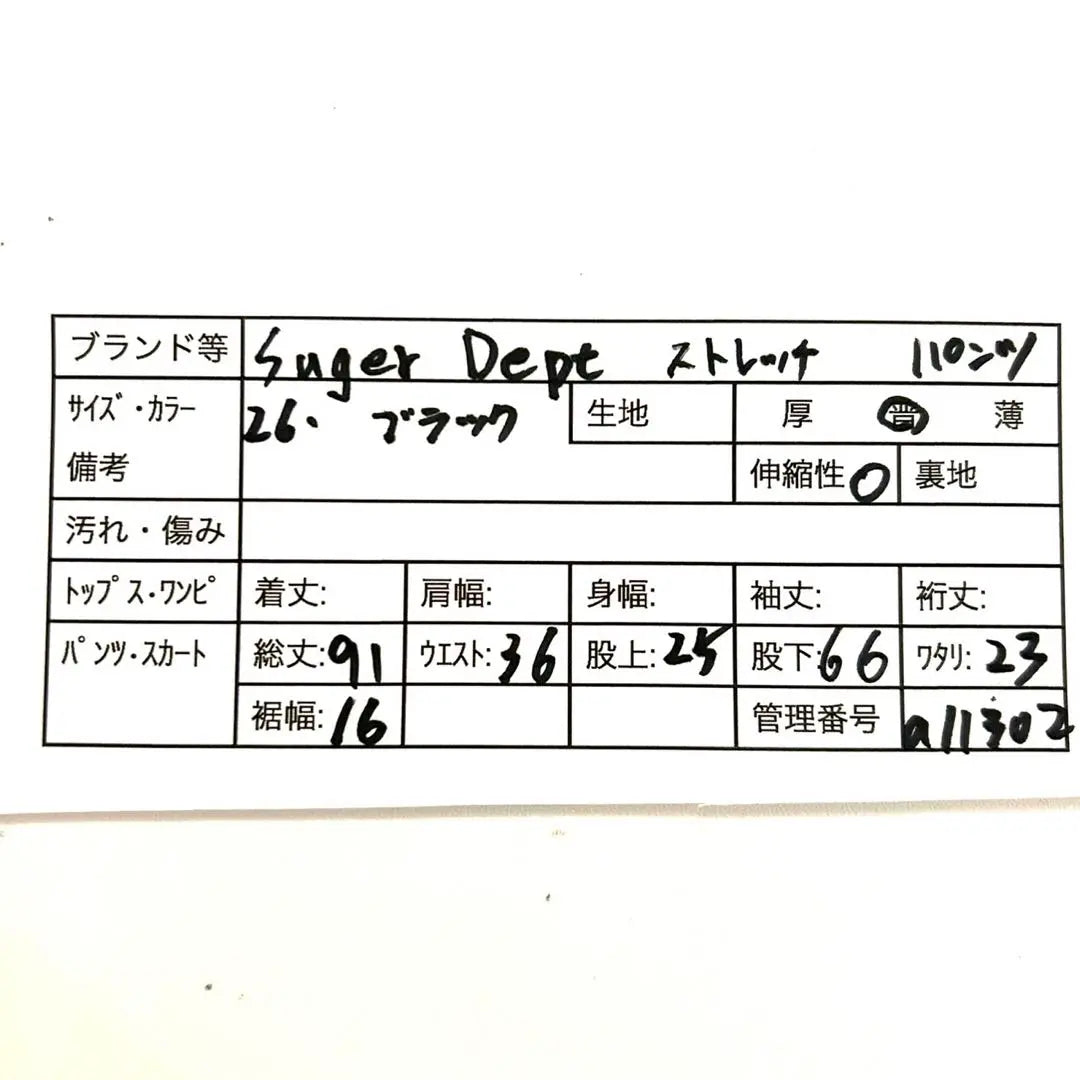 ブランド等 Suger Dept ストレッチ パンツ
サイズ・カラー 26. ブラック 生地 厚 普 薄
備考 伸縮性 〇 裏地
汚れ・傷み
トップス・ワンピ 着丈: 肩幅: 身幅: 袖丈: 裄丈:
パンツ・スカート 総丈:91 ウエスト:36 股上:25 股下:66 ワタリ:23
裾幅:16 管理番号 a11302